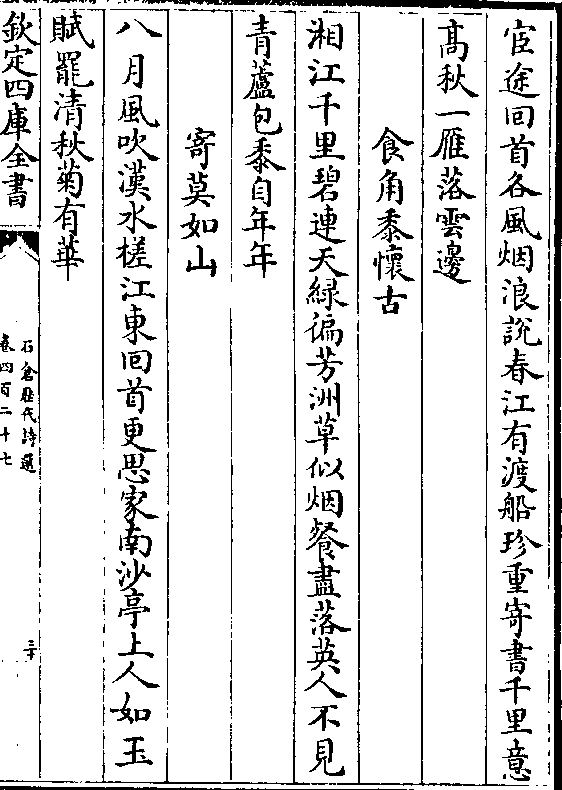 宦途回首各風烟浪說春江有渡船珍重寄書千里意
髙秋一雁落雲邊
食角黍懷古
湘江千里碧連天緑徧芳洲草似烟餐盡落英人不見
青蘆包黍自年年
寄莫如山
八月風吹漢水槎江東回首更思家南沙亭上人如玉
賦罷清秋菊有華
欽定四庫全書
石倉歷代詩選
卷四百二十七
三十